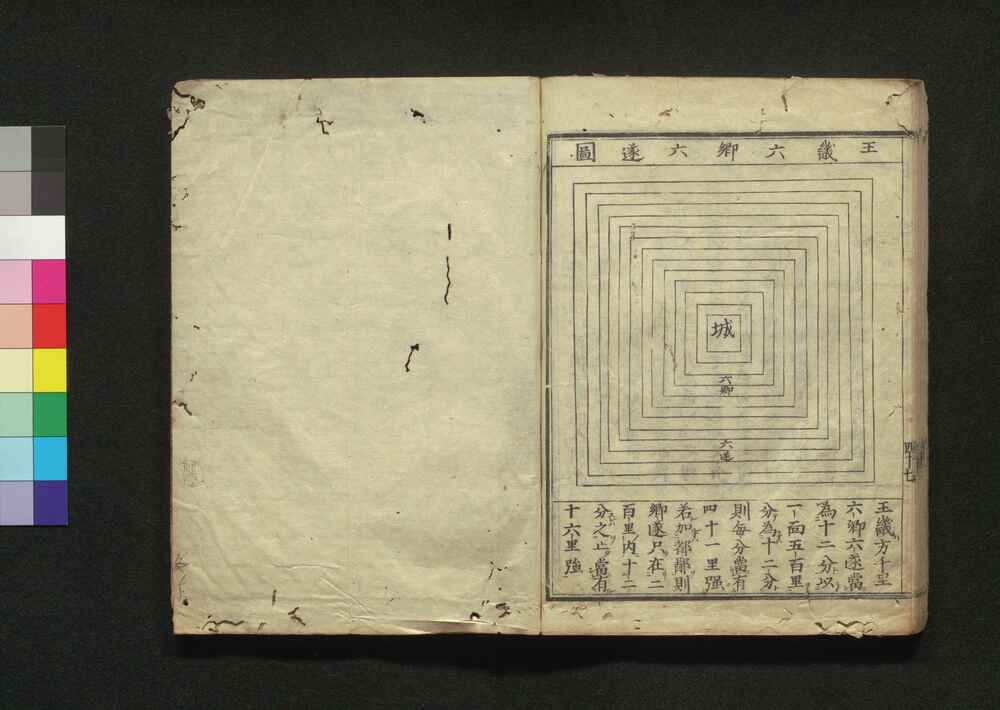 王畿六鄉六遂圖
城
六鄉
六遂
王畿方千里
六鄉六遂當
為十二分以
一面五百里
分為十二分
則每分當有
四十一里强
若加都鄙則
鄉遂只在二
百里内十二
分之止當有
十六里強
四十七